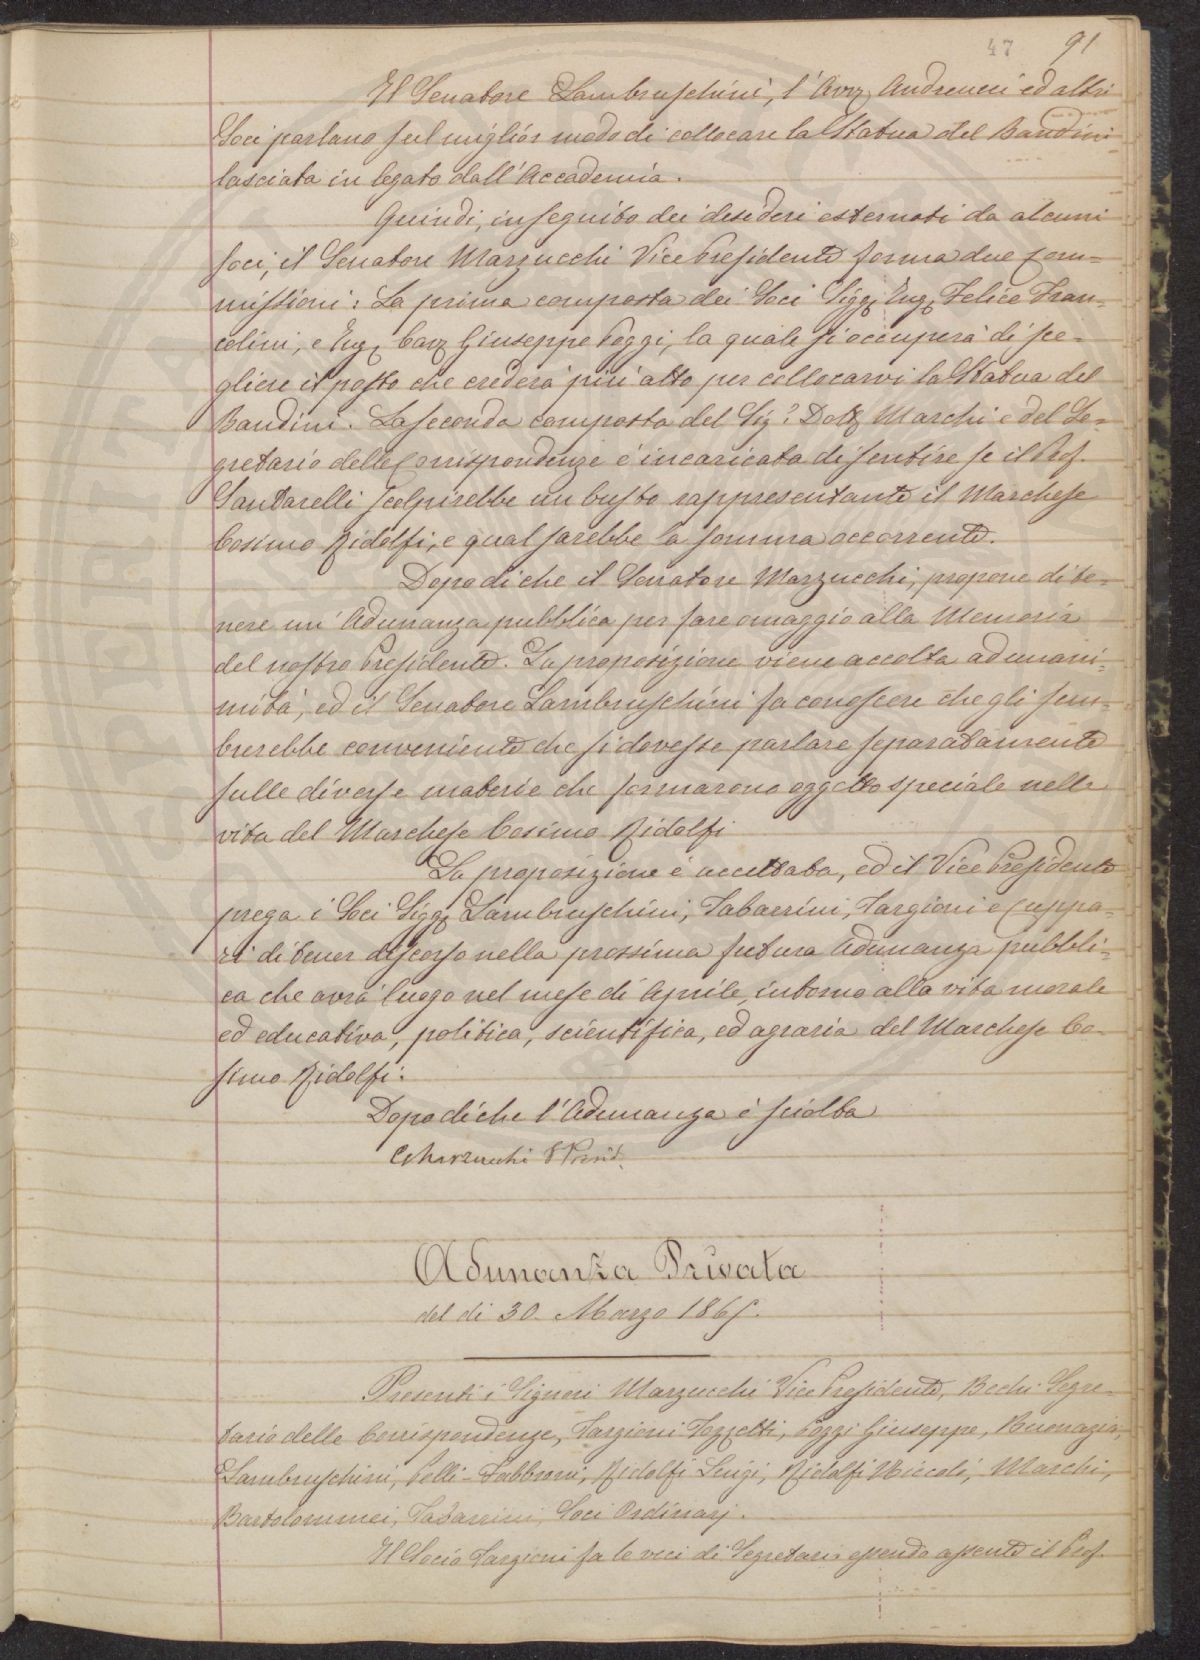 47 91
Il Senatore Lambruschini, l'Avv. Andreucci ed altri
Soci parlano sul miglior modo di collocare la Statua del Bandini
lasciata in legato dall'Accademia.
Quindi, in seguito dei desideri esternati da alcuni
soci, il Senatore Marzucchi Vice Presidente forma due Com=
missioni: La prima composta dei Soci Sigg. Ing. Felice Fran=
colini, e Ing. Cav. Giuseppe Poggi, la quale si occuperà di sce=
gliere il posto che crederà più atto per collocarvi la Statua del
Bandini. La seconda composta del Sig.e Dott. Marchi e del Se=
gretario delle Corrispondenze è incaricata di sentire se il Prof.
Santarelli scolpirebbe un busto rappresentante il Marchese
Cosimo Ridolfi, e qual sarebbe la somma occorrente.
Dopo di che il Senatore Marzucchi, propone di te=
nere un'Adunanza pubblica per fare omaggio alla Memoria
del nostro Presidente. La proposizione viene accolta ad unani=
mità, ed il Senatore Lambruschini fa conoscere che gli sem=
brerebbe conveniente che si dovesse parlare separatamente
sulle diverse materie che formarono oggetto speciale nella
vita del Marchese Cosimo Ridolfi
La proposizione è accettata, ed il Vice Presidente
prega i Soci Sigg. Lambruschini, Tabarrini, Targioni e Cuppa=
ri di tener discorso nella prossima futura Adunanza pubbli=
ca che avrà luogo nel mese di Aprile, intorno alla vita morale
ed educativa, politica, scientifica, ed agraria del Marchese Co=
simo Ridolfi.
Dopo di che l'Adunanza è sciolta
C. Marzucchi V. Presid.
Adunanza Privata
del dì 30. Marzo 1865.
Presenti i Signori Marzucchi Vice Presidente, Bechi Segre=
tario delle Corrispondenze, Targioni Tozzetti, Poggi Giuseppe, Buonazia,
Lambruschini, Pelli-Fabbroni, Ridolfi Luigi, Ridolfi Niccolò, Marchi,
Bartolommei, Tabarrini, Soci Ordinarj.
Il Socio Targioni fa le veci di Segretario essendo assente il Prof.